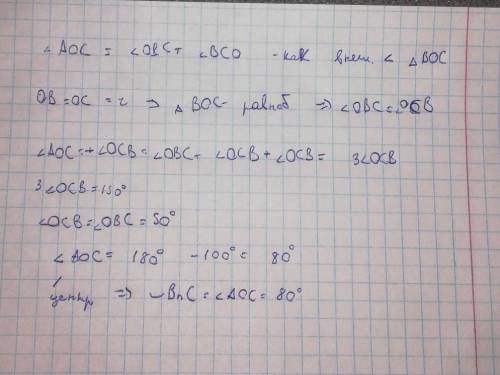 ∠AOC = ∠OBC + ∠BCO - как внеш. ∠ △BOC
OB = OC = r ⇒ △ BOC - равноб ⇒ ∠OBC = ∠OCB
∠AOC = + ∠OCB = ∠OBC + ∠OCB + ∠OCB = 3∠OCB
3∠OCB = 150°
∠OCB = ∠OBC = 50°
∠AOC = 180° - 100° = 80°
центр ⇒ ◡BnC = ∠AOC = 80°